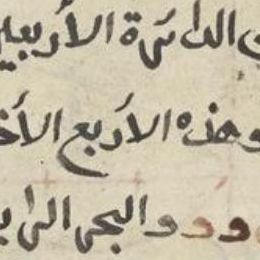 الدائرة الأربعين
وهذه الأربع الأخ
و و و والبحر الرا